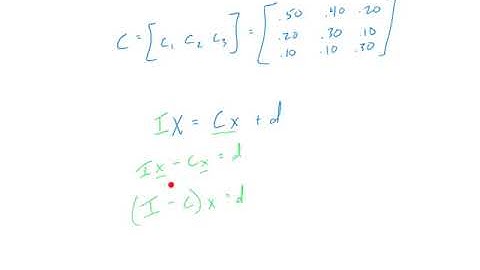 C = [c₁ c₂ c₃] = [.50 .40 .20
.20 .30 .10
.10 .10 .30]
Ix = Cx + d
Ix - Cx = d
(I - C)x = d